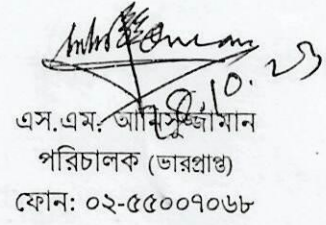 এস.এম. আনিসুজ্জামান
পরিচালক (ভারপ্রাপ্ত)
ফোন: ০২-৫৫০০৭০৬৮